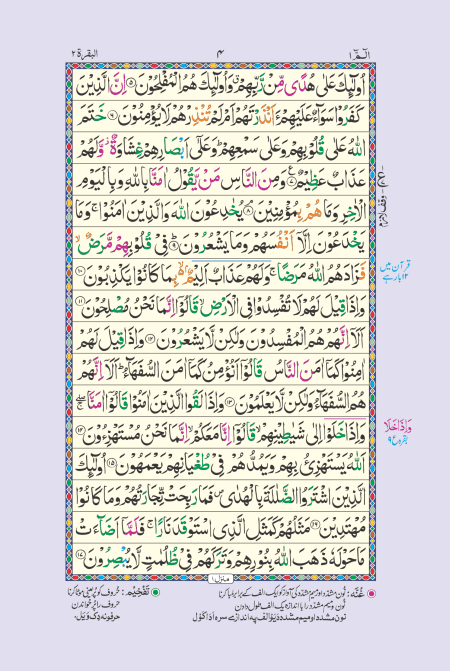 الٓمّٓ ١ ۴ البقرة ٢
اُولٰٓئِكَ عَلٰى هُدًى مِّنْ رَّبِّهِمْ ۗ وَاُولٰٓئِكَ هُمُ الْمُفْلِحُوْنَ ۝٥ اِنَّ الَّذِيْنَ
كَفَرُوْا سَوَآءٌ عَلَيْهِمْ ءَاَنْذَرْتَهُمْ اَمْ لَمْ تُنْذِرْهُمْ لَا يُؤْمِنُوْنَ ۝٦ خَتَمَ
اللّٰهُ عَلٰى قُلُوْبِهِمْ وَعَلٰى سَمْعِهِمْ ؕ وَعَلٰٓى اَبْصَارِهِمْ غِشَاوَةٌ ؗ وَّلَهُمْ
عَذَابٌ عَظِيْمٌ ۝٧ وَمِنَ النَّاسِ مَنْ يَّقُوْلُ اٰمَنَّا بِاللّٰهِ وَبِالْيَوْمِ
الْاٰخِرِ وَمَا هُمْ بِمُؤْمِنِيْنَ ۝٨ يُخٰدِعُوْنَ اللّٰهَ وَالَّذِيْنَ اٰمَنُوْا ۚ وَمَا
يَخْدَعُوْنَ اِلَّاۤ اَنْفُسَهُمْ وَمَا يَشْعُرُوْنَ ۝٩ فِيْ قُلُوْبِهِمْ مَّرَضٌ ۙ
فَزَادَهُمُ اللّٰهُ مَرَضًا ۚ وَلَهُمْ عَذَابٌ اَلِيْمٌ ۙ بِمَا كَانُوْا يَكْذِبُوْنَ ۝١٠
وَاِذَا قِيْلَ لَهُمْ لَا تُفْسِدُوْا فِي الْاَرْضِ ۙ قَالُوْۤا اِنَّمَا نَحْنُ مُصْلِحُوْنَ ۝١١
اَلَاۤ اِنَّهُمْ هُمُ الْمُفْسِدُوْنَ وَلٰكِنْ لَّا يَشْعُرُوْنَ ۝١٢ وَاِذَا قِيْلَ لَهُمْ
اٰمِنُوْا كَمَاۤ اٰمَنَ النَّاسُ قَالُوْۤا اَنُؤْمِنُ كَمَاۤ اٰمَنَ السُّفَهَآءُ ؕ اَلَاۤ اِنَّهُمْ
هُمُ السُّفَهَآءُ وَلٰكِنْ لَّا يَعْلَمُوْنَ ۝١٣ وَاِذَا لَقُوا الَّذِيْنَ اٰمَنُوْا قَالُوْۤا اٰمَنَّا ۖۚ
وَاِذَا خَلَوْا اِلٰى شَيٰطِيْنِهِمْ ۙ قَالُوْۤا اِنَّا مَعَكُمْ ۙ اِنَّمَا نَحْنُ مُسْتَهْزِءُوْنَ ۝١٤
اَللّٰهُ يَسْتَهْزِئُ بِهِمْ وَيَمُدُّهُمْ فِيْ طُغْيَانِهِمْ يَعْمَهُوْنَ ۝١٥ اُولٰٓئِكَ
الَّذِيْنَ اشْتَرَوُا الضَّلٰلَةَ بِالْهُدٰى ۪ فَمَا رَبِحَتْ تِّجَارَتُهُمْ وَمَا كَانُوْا
مُهْتَدِيْنَ ۝١٦ مَثَلُهُمْ كَمَثَلِ الَّذِي اسْتَوْقَدَ نَارًا ۚ فَلَمَّاۤ اَضَآءَتْ
مَا حَوْلَهٗ ذَهَبَ اللّٰهُ بِنُوْرِهِمْ وَتَرَكَهُمْ فِيْ ظُلُمٰتٍ لَّا يُبْصِرُوْنَ ۝١٧
قرآن میں
۱۲ بار ہے
وَاِذَا خَلَا
بقرہ ع ۹
منزل ١
غُنّه: نون مشدد اور میم مشدد کی آواز کو ایک الف کے برابر لمبا کرنا
تَفْخِيْم: حُروف کو پُر یعنی موٹا کرنا
نون و میم مشدد را باندازه یک الف طول دادن
حروف را پُر خواندن